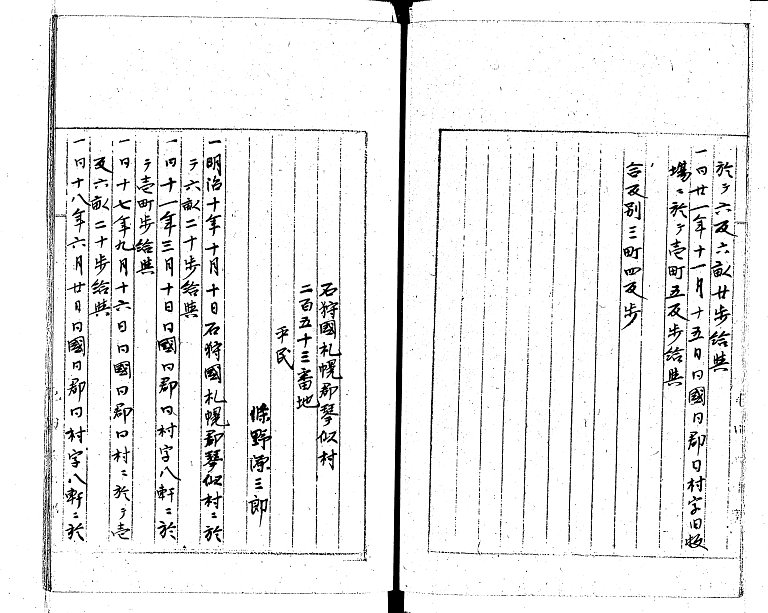 於テ六反六畝廿歩給與
一同廿一年十一月十五日同國同郡同村字旧板
場ニ於テ壱町五反歩給與
合反別三町四反歩
石狩國札幌郡琴似村
二百五十三番地
平民
條野源三郎
一明治十年十月十日石狩國札幌郡琴似村ニ於
テ六畝二十歩給與
一同十一年三月十日同國同郡同村字八軒ニ於
テ壱町歩給與
一同十七年九月十六日同國同郡同村ニ於テ壱
反六畝二十歩給與
一同十八年六月廿日同國同郡同村字八軒ニ於